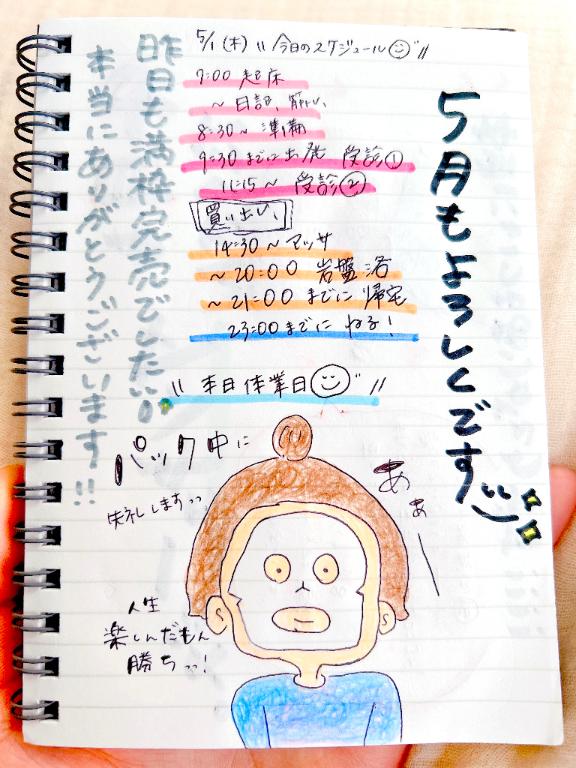 5/1(木) "今日のスケジュール"
7:00 起床
～日記、筋トレ
8:30～準備
9:30までに出発 受診①
11:15～ 受診②
買い出し、
14:30～マッサ
～20:00 岩盤浴
～21:00までに帰宅
23:00までにねる!
"本日休業日"
5月もよろしくです
昨日も満枠完売でした!!
本当にありがとうございます!!
パック中に
失礼しますっっ
あぁ
人生
楽しんだもん
勝ちっっ!